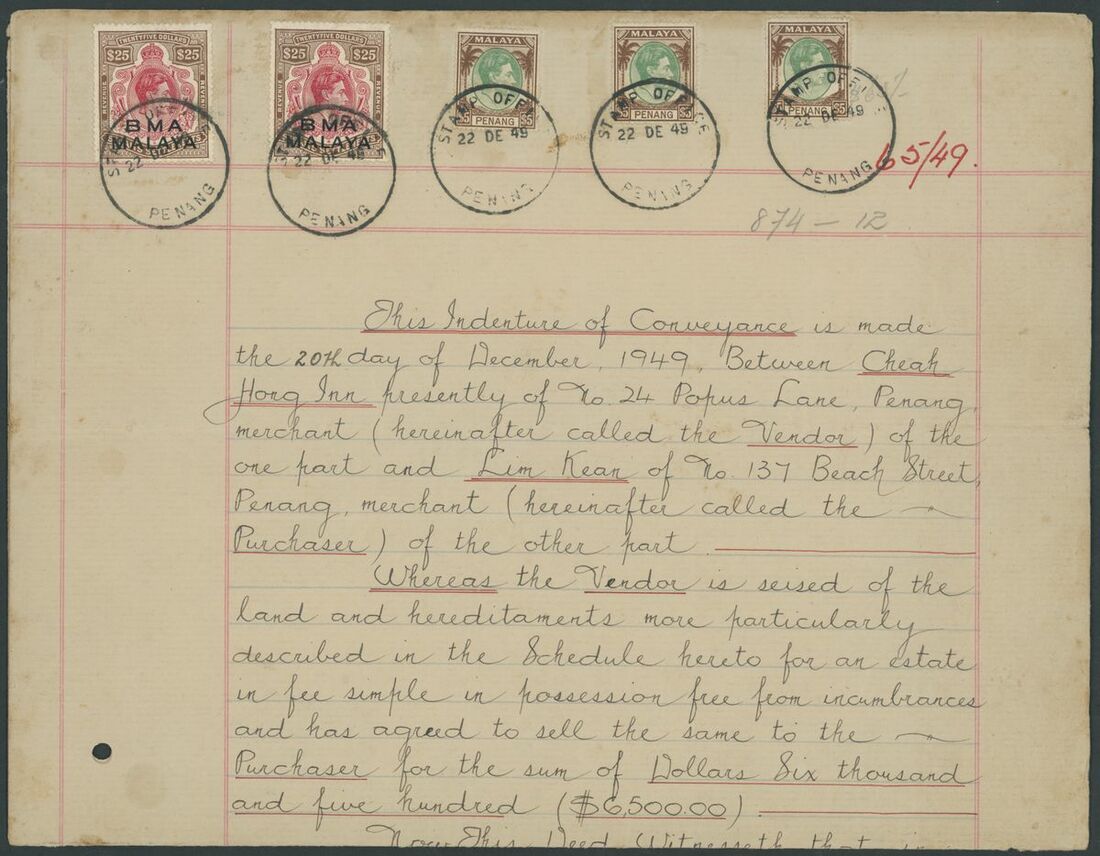 TWENTYFIVE DOLLARS
$25 $25
REVENUE
BMA
MALAYA
STAMP OFFICE
22 DE 49
PENANG
TWENTYFIVE DOLLARS
$25 $25
REVENUE
BMA
MALAYA
STAMP OFFICE
22 DE 49
PENANG
MALAYA
$5 PENANG $5
STAMP OFFICE
22 DE 49
PENANG
MALAYA
$5 PENANG $5
STAMP OFFICE
22 DE 49
PENANG
MALAYA
$5 PENANG $5
STAMP OFFICE
22 DE 49
PENANG
65/49.
874 — 12
This Indenture of Conveyance is made
the 20th day of December, 1949, Between Cheah
Hong Inn presently of No. 24 Popus Lane, Penang,
merchant (hereinafter called the Vendor) of the
one part and Lim Kean of No. 137 Beach Street,
Penang, merchant (hereinafter called the
Purchaser) of the other part.
Whereas the Vendor is seised of the
land and hereditaments more particularly
described in the Schedule hereto for an estate
in fee simple in possession free from incumbrances
and has agreed to sell the same to the
Purchaser for the sum of Dollars Six thousand
and five hundred ($6,500.00)
Now This Deed Witnesseth that in